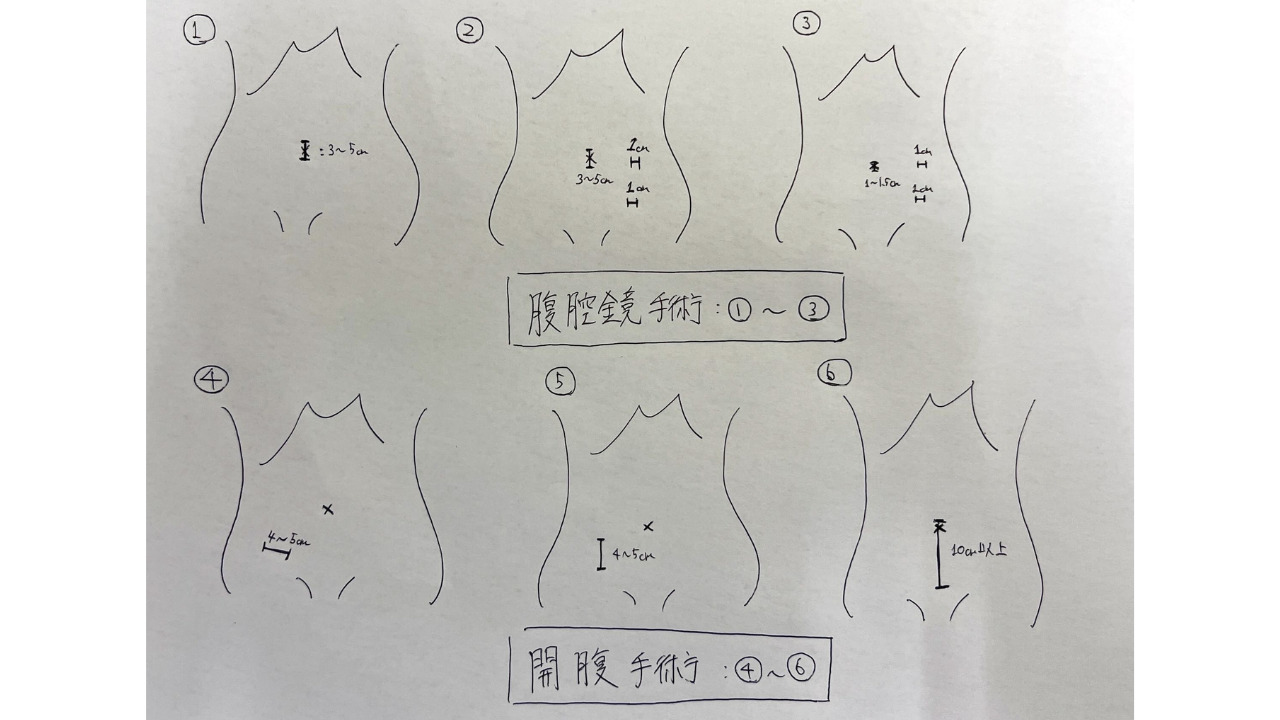 ①
②
③
:3~5cm
3~5cm
1cm
1cm
1~1.5cm
1cm
1cm
腹腔鏡手術:①~③
④
⑤
⑥
4~5cm
4~5cm
10cm以上
開腹手術:④~⑥